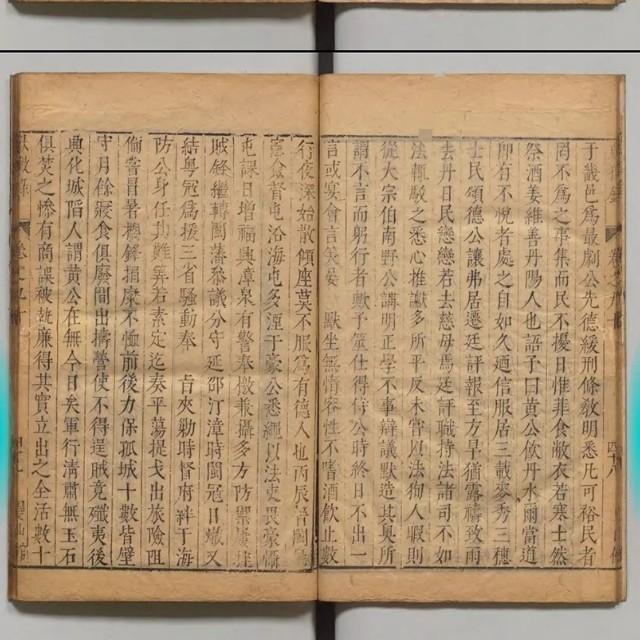 于戲邑為最劇公先德緩刑條敎明悉凡可裕民者
罔不為之事集而民不擾日惟菲食敝衣若寒士然
祭酒姜維善丹陽人也語子曰黃公飲丹水爾當道
即有不悅者處之自如久迺信服居三載麥秀三穗
士民頌德公讓弗居遷廷評報至方旱猶露禱孜雨
去丹日民戀戀若去慈母焉廷評職持法諸司不如
法輒駁之悉心推讞多所平反未嘗以法狥人暇則
從大宗伯南野公講明正學不事辯議默造其奧所
謂不言而躬行者歟予筮仕得侍公時終日不出一
言或宴會言笑晏 默坐無惰容性不嗜酒飲止數
行夜深始散傾座莫不服為有德人也丙辰晉閩
憲僉督屯沿海屯多湮于豪公悉繩以法吏畏豪懾
屯課日增福興漳泉有警奉檄兼攝多方防禦
賊鋒繼轉閩藩叅議分守延邵汀漳時閩冦日熾又
結粵冦為援三省騷動奉 旨夾勦時督府絆于海
防公身任其難算若素定迄奏平蕩提戈出旅險阻
備嘗冒暑摧鋒捐廩不恤前後力保孤城十數皆壁
守月餘寢食俱廢間出擣營使不得逞賊竟殲夷後
典化城陷人謂黃公在無今日矣軍行清肅無玉石
俱焚之慘有商誤被逮廉得其實立出之全活數十